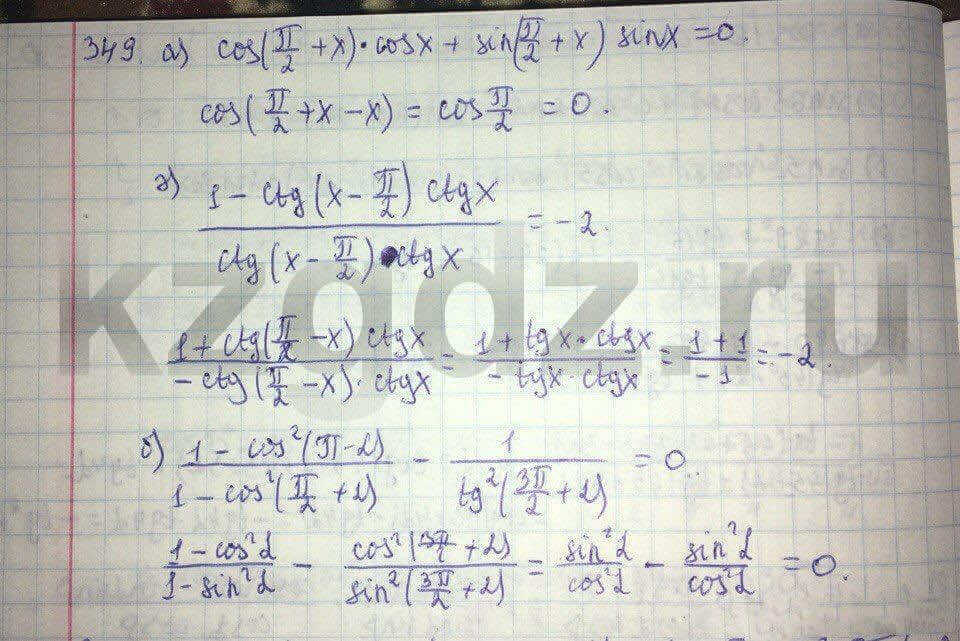 349. а) cos(π/2 + x)·cosx + sin(π/2 + x) sinx = 0.
cos(π/2 + x − x) = cos π/2 = 0.
г) (1 − ctg(x − π/2) ctgx)/(ctg(x − π/2)·ctgx) = −2.
(1 + ctg(π/2 − x) ctgx)/(−ctg(π/2 − x)·ctgx) = (1 + tgx·ctgx)/(−tgx·ctgx) = (1 + 1)/(−1) = −2.
б) (1 − cos²(π − α))/(1 − cos²(π/2 + α)) − 1/(tg²(3π/2 + α)) = 0.
(1 − cos²α)/(1 − sin²α) − (cos²(3π/2 + α))/(sin²(3π/2 + α)) = sin²α/cos²α − sin²α/cos²α = 0.
kzgdz.ru